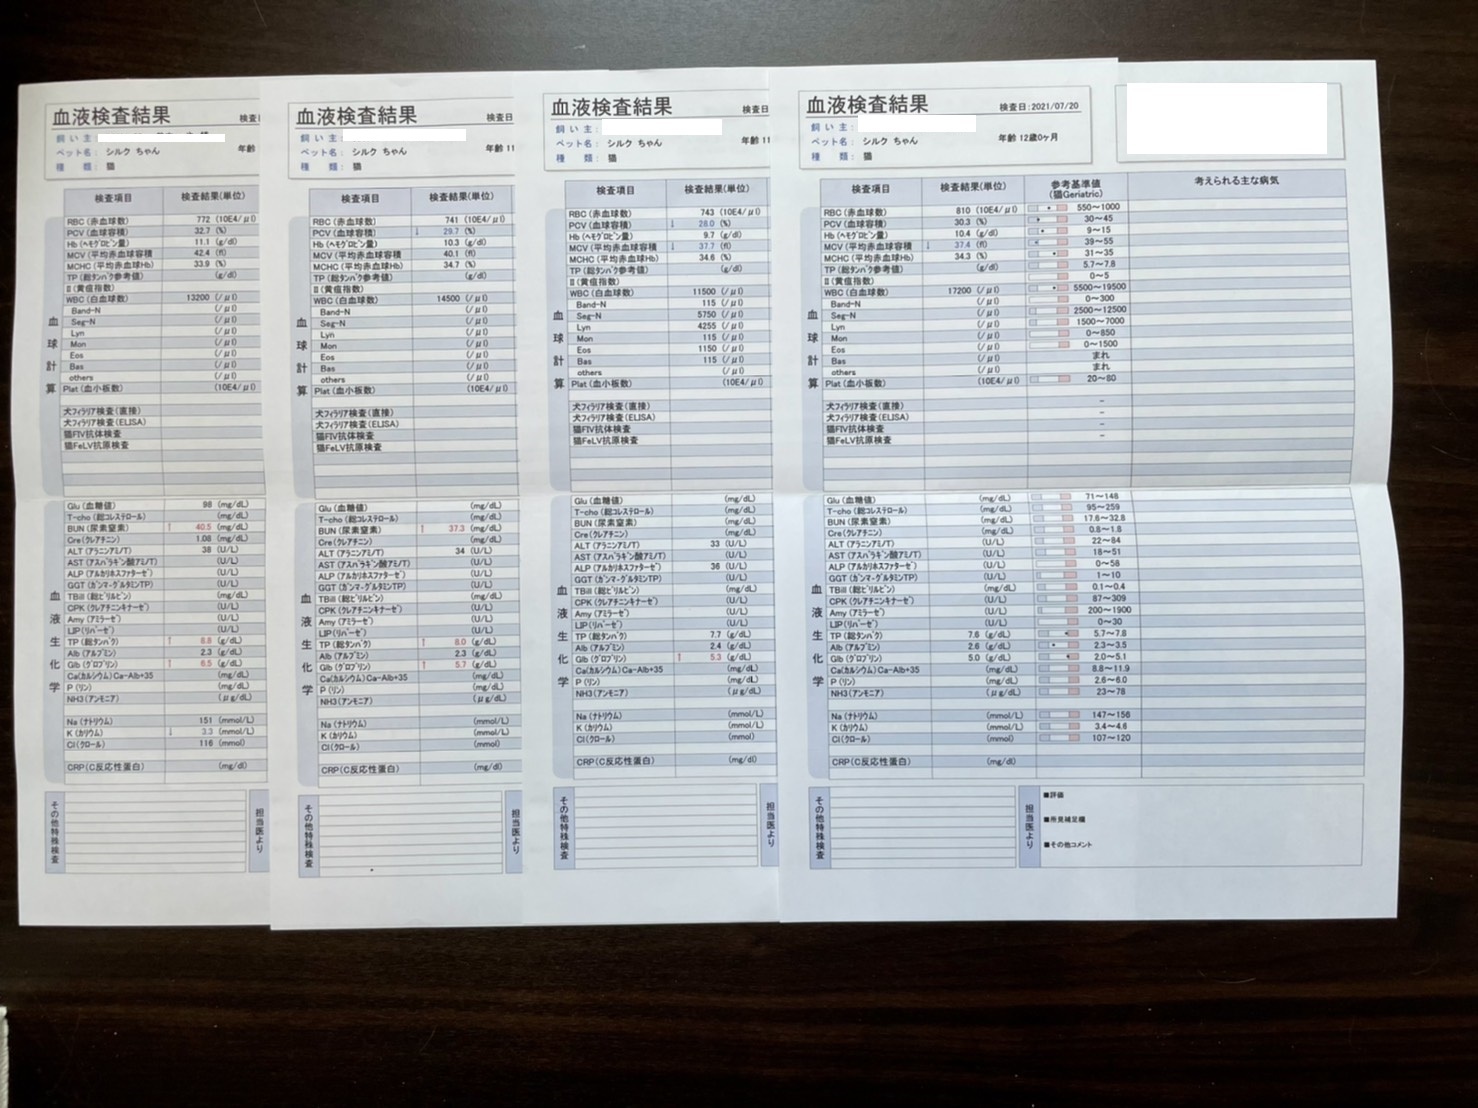 血液検査結果
検査日
飼い主:
ペット名: シルク ちゃん
年齢
種 類: 猫
検査項目 検査結果(単位)
血球計算
RBC(赤血球数) 772 (10E4/μl)
PCV(血球容積) 32.7 (%)
Hb(ヘモグロビン量) 11.1 (g/dl)
MCV(平均赤血球容積 42.4 (fl)
MCHC(平均赤血球Hb) 33.9 (%)
TP(総タンパク参考値) (g/dl)
II(黄疸指数)
WBC(白血球数) 13200 (/μl)
Band-N (/μl)
Seg-N (/μl)
Lyn (/μl)
Mon (/μl)
Eos (/μl)
Bas (/μl)
others (/μl)
Plat(血小板数) (10E4/μl)
犬フィラリア検査(直接)
犬フィラリア検査(ELISA)
猫FIV抗体検査
猫FeLV抗原検査
血液生化学
Glu(血糖値) 98 (mg/dL)
T-cho(総コレステロール) (mg/dL)
BUN(尿素窒素) ↑ 40.5 (mg/dL)
Cre(クレアチニン) 1.08 (mg/dL)
ALT(アラニンアミノT) 38 (U/L)
AST(アスパラギン酸アミノT) (U/L)
ALP(アルカリホスファターゼ) (U/L)
GGT(ガンマ-グルタミンTP) (U/L)
TBill(総ビリルビン) (U/L)
CPK(クレアチニンキナーゼ) (U/L)
Amy(アミラーゼ) (U/L)
LIP(リパーゼ) (U/L)
TP(総タンパク) ↑ 8.8 (g/dL)
Alb(アルブミン) 2.3 (g/dL)
Glb(グロブリン) ↑ 6.5 (g/dL)
Ca(カルシウム)Ca-Alb+35 (mg/dL)
P(リン) (mg/dL)
NH3(アンモニア) (μg/dL)
Na(ナトリウム) 151 (mmol/L)
K(カリウム) ↓ 3.3 (mmol/L)
Cl(クロール) 116 (mmol)
CRP(C反応性蛋白) (mg/dl)
その他特殊検査
担当医より
血液検査結果
検査日
飼い主:
ペット名: シルク ちゃん
年齢 11
種 類: 猫
検査項目 検査結果(単位)
血球計算
RBC(赤血球数) 741 (10E4/μl)
PCV(血球容積) ↓ 29.7 (%)
Hb(ヘモグロビン量) 10.3 (g/dl)
MCV(平均赤血球容積 40.1 (fl)
MCHC(平均赤血球Hb) 34.7 (%)
TP(総タンパク参考値) (g/dl)
II(黄疸指数)
WBC(白血球数) 14500 (/μl)
Band-N (/μl)
Seg-N (/μl)
Lyn (/μl)
Mon (/μl)
Eos (/μl)
Bas (/μl)
others (/μl)
Plat(血小板数) (10E4/μl)
犬フィラリア検査(直接)
犬フィラリア検査(ELISA)
猫FIV抗体検査
猫FeLV抗原検査
血液生化学
Glu(血糖値) (mg/dL)
T-cho(総コレステロール) (mg/dL)
BUN(尿素窒素) ↑ 37.3 (mg/dL)
Cre(クレアチニン) (mg/dL)
ALT(アラニンアミノT) 34 (U/L)
AST(アスパラギン酸アミノT) (U/L)
ALP(アルカリホスファターゼ) (U/L)
GGT(ガンマ-グルタミンTP) (U/L)
TBill(総ビリルビン) (U/L)
CPK(クレアチニンキナーゼ) (U/L)
Amy(アミラーゼ) (U/L)
LIP(リパーゼ) (U/L)
TP(総タンパク) ↑ 8.0 (g/dL)
Alb(アルブミン) 2.3 (g/dL)
Glb(グロブリン) ↑ 5.7 (g/dL)
Ca(カルシウム)Ca-Alb+35 (mg/dL)
P(リン) (mg/dL)
NH3(アンモニア) (μg/dL)
Na(ナトリウム) (mmol/L)
K(カリウム) (mmol/L)
Cl(クロール) (mmol)
CRP(C反応性蛋白) (mg/dl)
その他特殊検査
担当医より
血液検査結果
検査日
飼い主:
ペット名: シルク ちゃん
年齢 11
種 類: 猫
検査項目 検査結果(単位)
血球計算
RBC(赤血球数) 743 (10E4/μl)
PCV(血球容積) ↓ 28.0 (%)
Hb(ヘモグロビン量) 9.7 (g/dl)
MCV(平均赤血球容積 ↓ 37.7 (fl)
MCHC(平均赤血球Hb) 34.6 (%)
TP(総タンパク参考値) (g/dl)
II(黄疸指数)
WBC(白血球数) 11500 (/μl)
Band-N 115 (/μl)
Seg-N 5750 (/μl)
Lyn 4255 (/μl)
Mon 115 (/μl)
Eos 1150 (/μl)
Bas 115 (/μl)
others (/μl)
Plat(血小板数) (10E4/μl)
犬フィラリア検査(直接)
犬フィラリア検査(ELISA)
猫FIV抗体検査
猫FeLV抗原検査
血液生化学
Glu(血糖値) (mg/dL)
T-cho(総コレステロール) (mg/dL)
BUN(尿素窒素) (mg/dL)
Cre(クレアチニン) (mg/dL)
ALT(アラニンアミノT) 33 (U/L)
AST(アスパラギン酸アミノT) (U/L)
ALP(アルカリホスファターゼ) 36 (U/L)
GGT(ガンマ-グルタミンTP) (U/L)
TBill(総ビリルビン) (U/L)
CPK(クレアチニンキナーゼ) (U/L)
Amy(アミラーゼ) (U/L)
LIP(リパーゼ) (U/L)
TP(総タンパク) 7.7 (g/dL)
Alb(アルブミン) 2.4 (g/dL)
Glb(グロブリン) ↑ 5.3 (g/dL)
Ca(カルシウム)Ca-Alb+35 (mg/dL)
P(リン) (mg/dL)
NH3(アンモニア) (μg/dL)
Na(ナトリウム) (mmol/L)
K(カリウム) (mmol/L)
Cl(クロール) (mmol)
CRP(C反応性蛋白) (mg/dl)
その他特殊検査
担当医より
血液検査結果
検査日:2021/07/20
飼い主:
ペット名: シルク ちゃん
年齢 12歳0ヶ月
種 類: 猫
検査項目 検査結果(単位) 参考基準値(猫Geriatric) 考えられる主な病気
血球計算
RBC(赤血球数) 810 (10E4/μl) 550~1000
PCV(血球容積) 30.3 (%) 30~45
Hb(ヘモグロビン量) 10.4 (g/dl) 9~15
MCV(平均赤血球容積 ↓ 37.4 (fl) 39~55
MCHC(平均赤血球Hb) 34.3 (%) 31~35
TP(総タンパク参考値) (g/dl) 5.7~7.8
II(黄疸指数) 0~5
WBC(白血球数) 17200 (/μl) 5500~19500
Band-N (/μl) 0~300
Seg-N (/μl) 2500~12500
Lyn (/μl) 1500~7000
Mon (/μl) 0~850
Eos (/μl) 0~1500
Bas (/μl) まれ
others (/μl) まれ
Plat(血小板数) (10E4/μl) 20~80
犬フィラリア検査(直接) -
犬フィラリア検査(ELISA) -
猫FIV抗体検査 -
猫FeLV抗原検査 -
血液生化学
Glu(血糖値) (mg/dL) 71~148
T-cho(総コレステロール) (mg/dL) 95~259
BUN(尿素窒素) (mg/dL) 17.6~32.8
Cre(クレアチニン) (mg/dL) 0.8~1.8
ALT(アラニンアミノT) (U/L) 22~84
AST(アスパラギン酸アミノT) (U/L) 18~51
ALP(アルカリホスファターゼ) (U/L) 0~58
GGT(ガンマ-グルタミンTP) (U/L) 1~10
TBill(総ビリルビン) (U/L) 0.1~0.4
CPK(クレアチニンキナーゼ) (U/L) 87~309
Amy(アミラーゼ) (U/L) 200~1900
LIP(リパーゼ) (U/L) 0~30
TP(総タンパク) 7.6 (g/dL) 5.7~7.8
Alb(アルブミン) 2.6 (g/dL) 2.3~3.5
Glb(グロブリン) 5.0 (g/dL) 2.0~5.1
Ca(カルシウム)Ca-Alb+35 (mg/dL) 8.8~11.9
P(リン) (mg/dL) 2.6~6.0
NH3(アンモニア) (μg/dL) 23~78
Na(ナトリウム) (mmol/L) 147~156
K(カリウム) (mmol/L) 3.4~4.6
Cl(クロール) (mmol) 107~120
CRP(C反応性蛋白) (mg/dl)
その他特殊検査
担当医より
■評価
■所見補足欄
■その他コメント